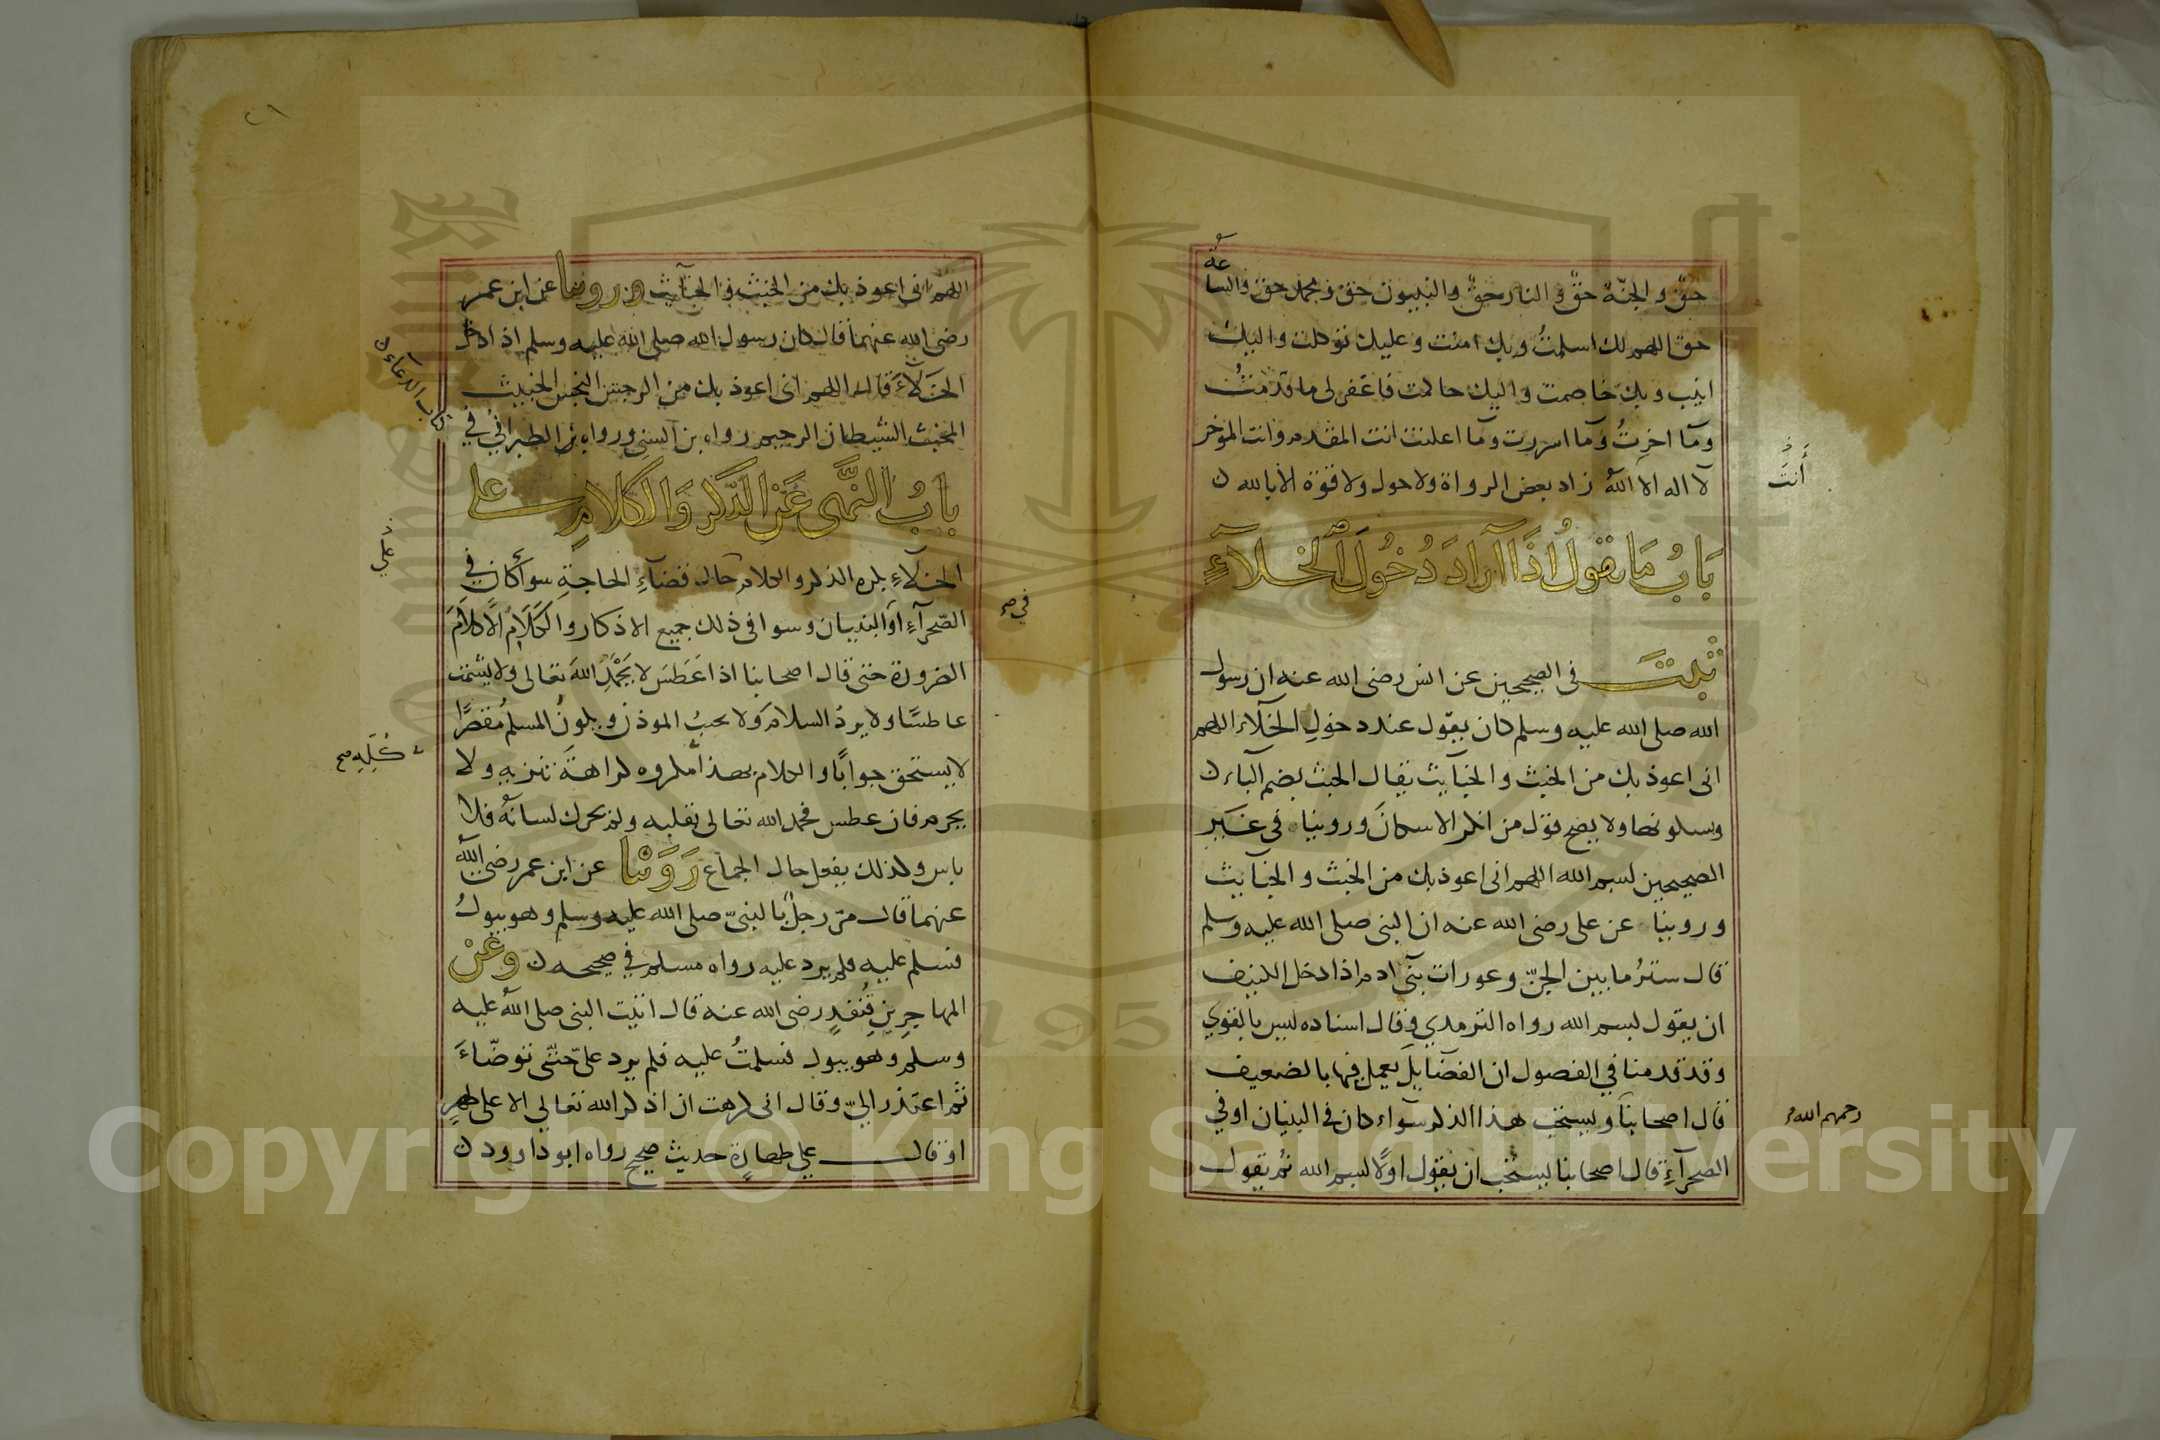 حقّ والجنّة حقّ والنار حقّ والنبيون حق ومحمد حق والساعة
حق اللهم لك اسلمتُ وبك امنت وعليك توكلت واليك
انيب وبك خاصمت واليك حاكمت فاغفر لى ما قدمتُ
ومآ اخرتُ ومآ اسررت ومآ اعلنت انت المقدم وانت الموخر
لآ اله الا اللهُ زاد بعض الرواة ولا حول ولا قوة الا بالله ن
أنتَ
بَابُ مَا يقولُ اذَا ارَادَ دُخُولَ الخلآءِ
ثبتَ فى الصحيحين عن انس رضى الله عنه ان رسول
الله صلى الله عليه وسلم كان يقول عند دخولِ الخلآء اللهم
انى اعوذ بك من الخبث والخبآيث يقال الخبث بضم الباء ن
وبسكونها ولا يصح قول من انكر الاسكانَ وروينا فى غَيرِ
الصحيحين بسم الله اللهم انى اعوذ بك من الخبث والخبآيث
وروينا عن على رضى الله عنه ان النبى صلى الله عليه وسلم
قال سترُ ما بين الجنّ وعورات بنىٓ ادم اذا دخل الكنيف
ان يقول بسم الله رواه الترمذي وقال اسناده ليس بالقوي
وقد قدمنا في الفصول ان الفضآيل يعمل فيها بالضعيف
قال اصحابنا ويستحب هذا الذكر سوآء كان فى البنيان او في
رحمهم الله
الصحرآءِ قال اصحابنا يستحب ان يقول اولًا بسم الله ثم يقول
٢٦
اللهم انى اعوذ بك من الخبث والخبآيث ن روينا عن ابن عمر
رضى الله عنهما قال كان رسول الله صلى الله عليه وسلم اذا دخل
الخلآءَ قال اللهم انى اعوذ بك من الرجس النجس الخبيث
المخبث الشيطان الرجيم رواه بن السنى ورواه الطبراني في
كتاب الدعاء ن
بابُ النهى عَن الذكر وَالكلامِ على
الخلآءِ يكره الذكر والكلام حال قضآءِ الحاجةِ سوأ كان في
على
الصّحرآءِ اوالبنيان وسوا فى ذلك جميع الاذكار والكَلَامُ الّا كلامَ
فى صح
الضرورة حتى قال اصحابنا اذا عَطسَ لا يَحْمَدِ اللهَ تعالى ولا يشمت
عاطسًا ولا يردُ السلامَ ولا يجيبُ الموذن ويكونُ المسلمُ مقصرًا
لا يستحق جوابًا والكلام بهذا مكروه كراهةَ تنزيهٍ ولا
كُلِّهِ صح
يحرم فان عطس فحمد الله تعالى بقلبه ولم يحرك لسانهُ فلا
باس وكذلك يفعل حال الجماع رَوَيْنا عن ابن عمر رضى الله
عنهما قال مرّ رجلٌ بالنبىّ صلى الله عليه وسلم وهو يبولُ
فسلم عليه فلم يرد عليه رواه مسلم في صحيحه ن وعَن
المهاجرِ بنِ قُنفُذٍ رضى الله عنه قال اتيت النبى صلى اللهُ عليه
وسلم وهو يبول فسلمتُ عليه فلم يرد علىّ حتّى توضّاءَ
ثم اعتذر اليّ وقال انى كرهت ان اذكر الله تعالي الا على طهرٍ
او قال علي طهارةٍ حديث صحيح رواه ابو داوود ن
Copyright © King Saud University
1957